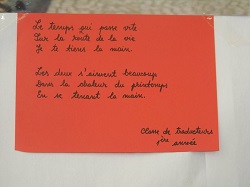 Le temps qui passe vite
Sur la route de la vie
Je te tiens la main.
Les deux s'aiment beaucoup
Dans la chaleur du printemps
En se tenant la main.
Classe de Traducteurs
1ère année